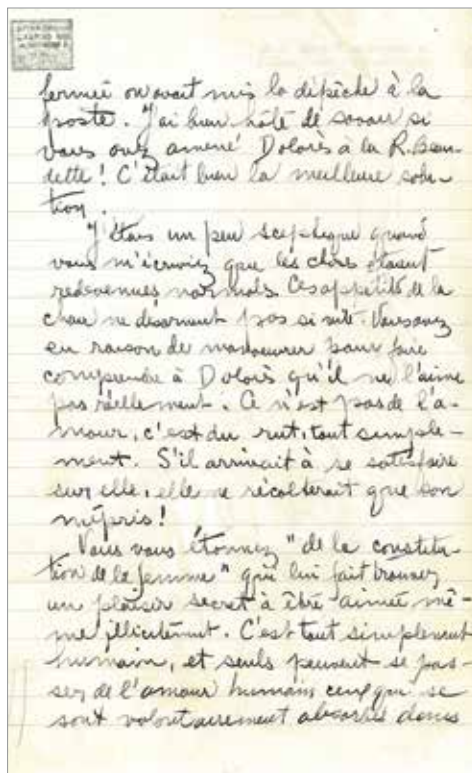 fermée on avait mis la dépêche à la
poste. J'ai bien hâte de savoir si
vous avez amené Dolorès à la R. Beau-
dette! C'était bien la meilleure solu-
tion.
J'étais un peu sceptique quand
vous m'écriviez que les choses étaient
redevenues normales. Les appétits de la
chair ne désarment pas si vite. Vous avez
eu raison de manoeuvrer pour faire
comprendre à Dolorès qu'il ne l'aime
pas réellement. Ce n'est pas de l'a-
mour, c'est du rut, tout simple-
ment. S'il arrivait à se satisfaire
sur elle, elle ne récolterait que son
mépris!
Vous vous étonnez "de la constitu-
tion de la femme" qui lui fait trouver
un plaisir secret à être aimée mê-
me illicitement. C'est tout simplement
humain, et seuls peuvent se pas-
ser de l'amour humain ceux qui se
sont volontairement absorbés dans